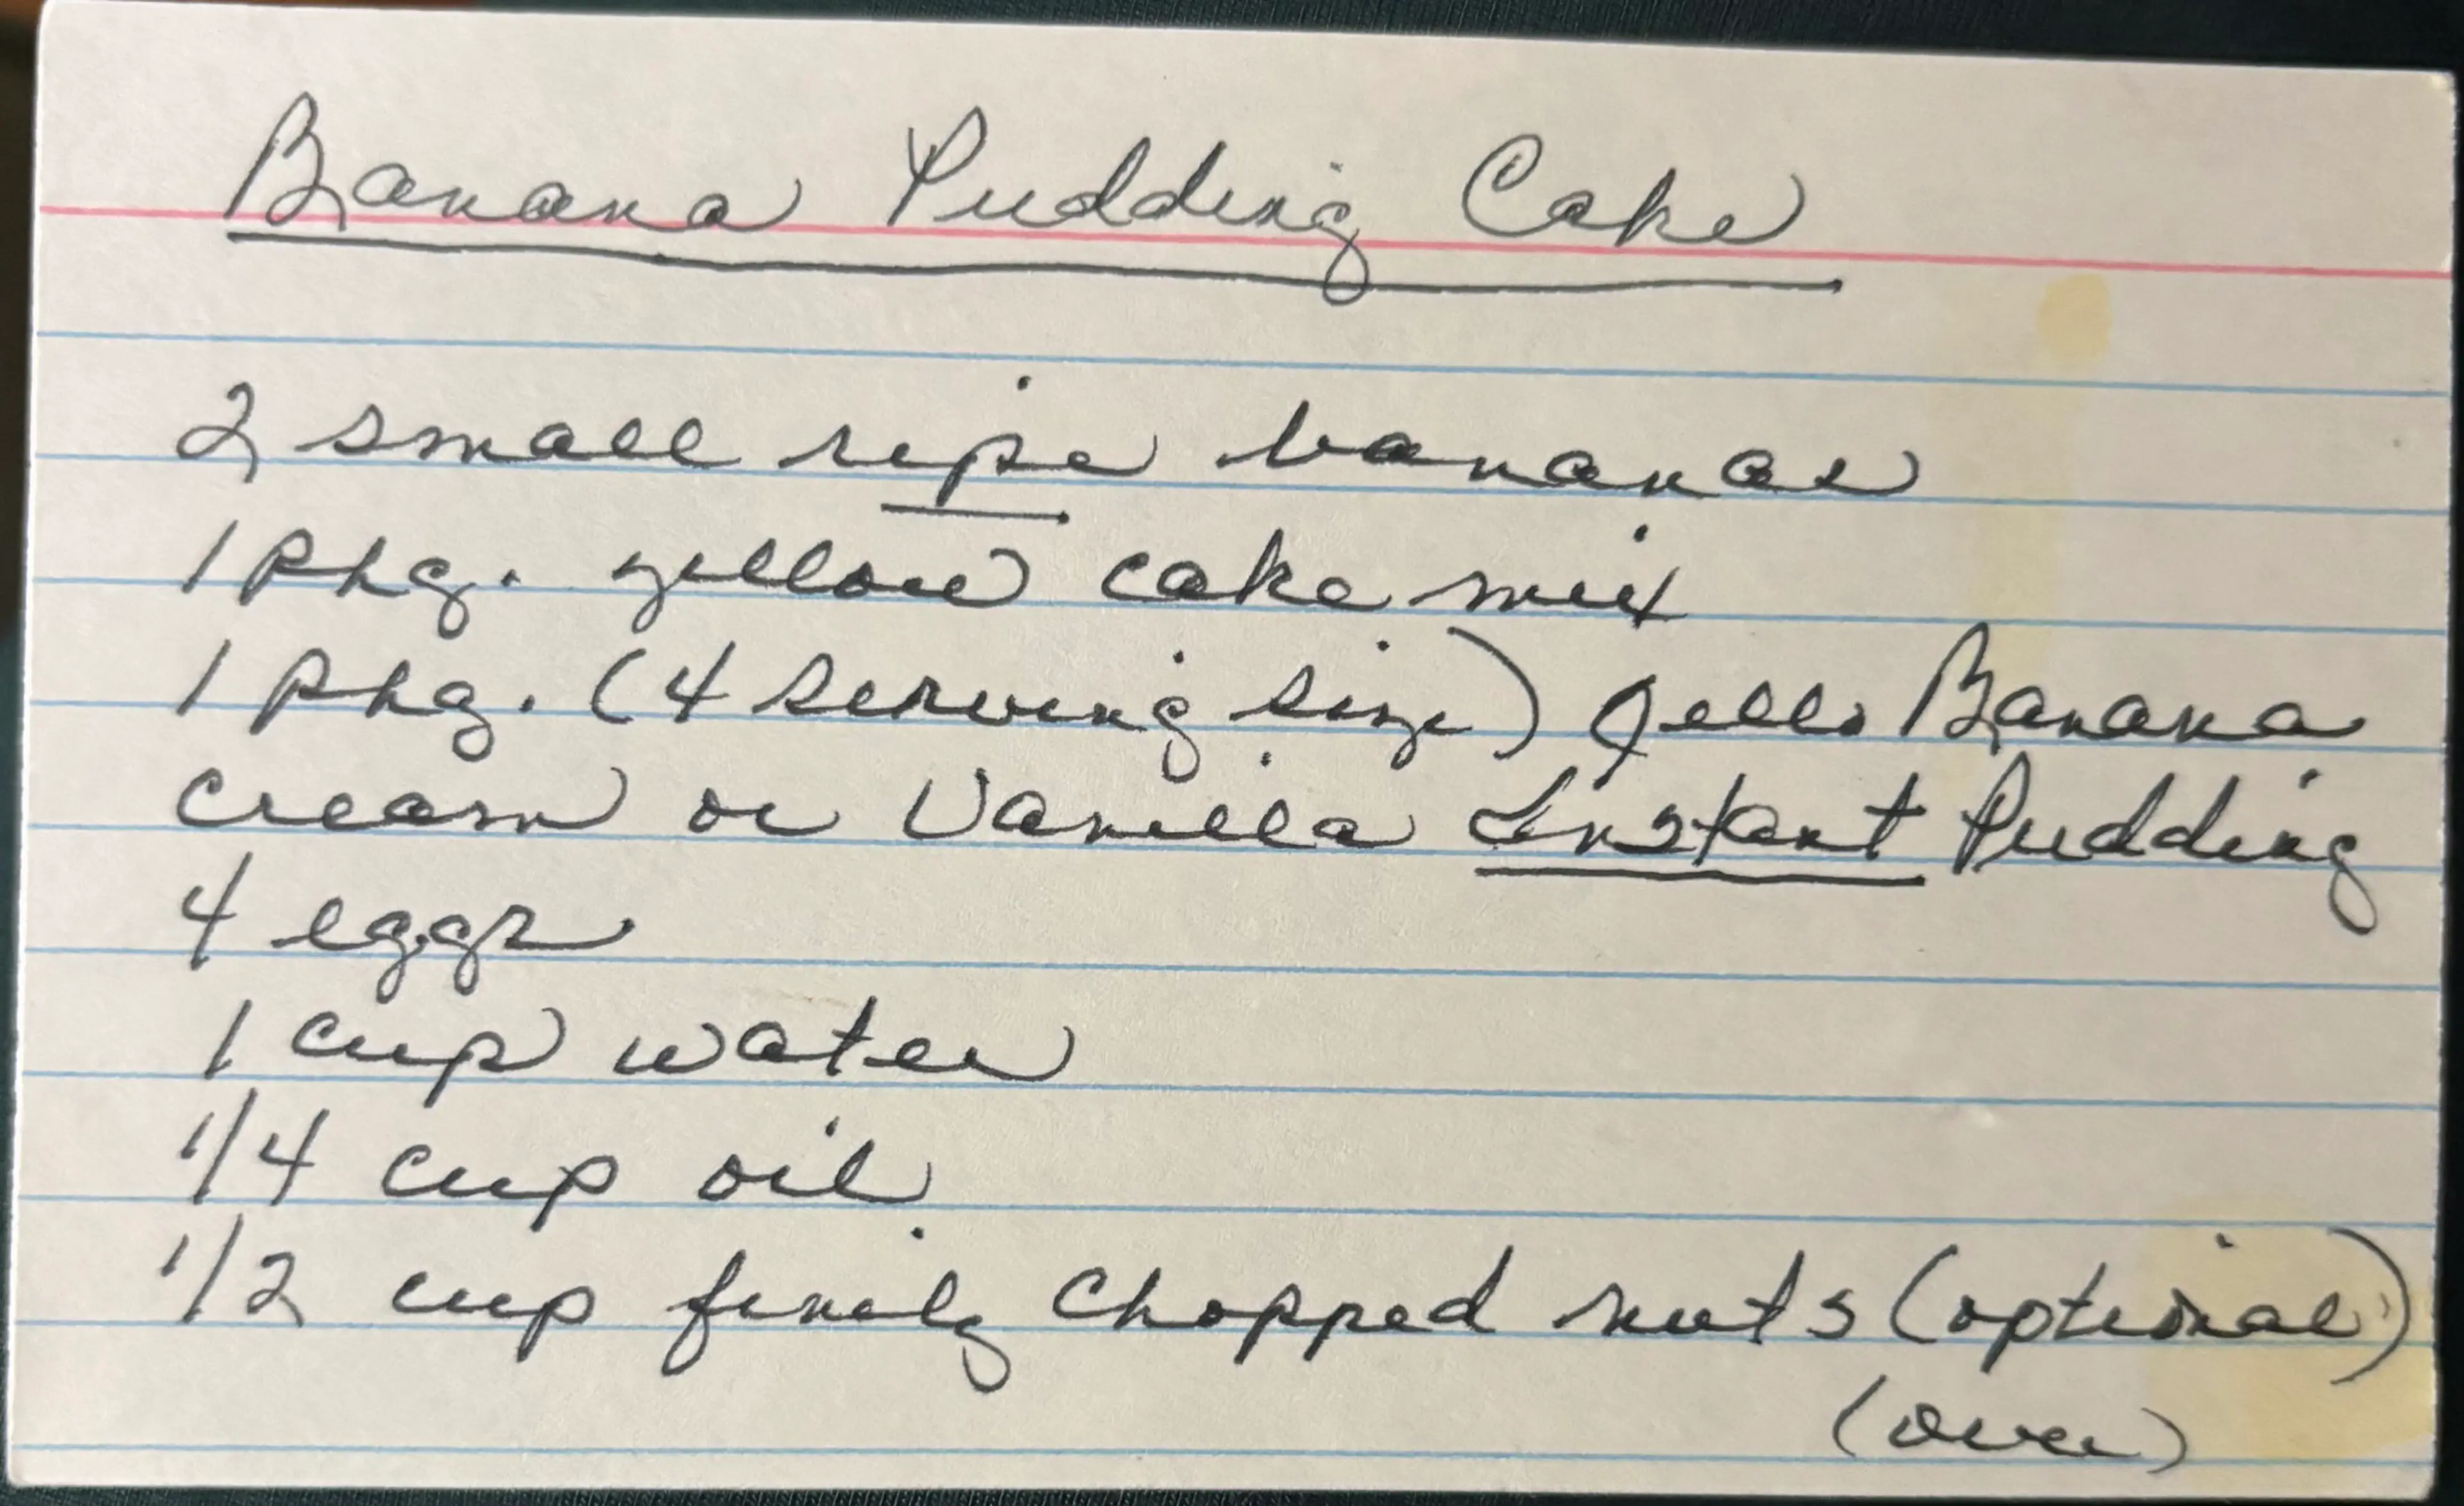 Banana Pudding Cake
2 small ripe bananas
1 pkg. yellow cake mix
1 pkg. (4 serving size) Jello Banana
cream or Vanilla Instant Pudding
4 eggs
1 cup water
1/4 cup oil
1/2 cup finely chopped nuts (optional)
(over)